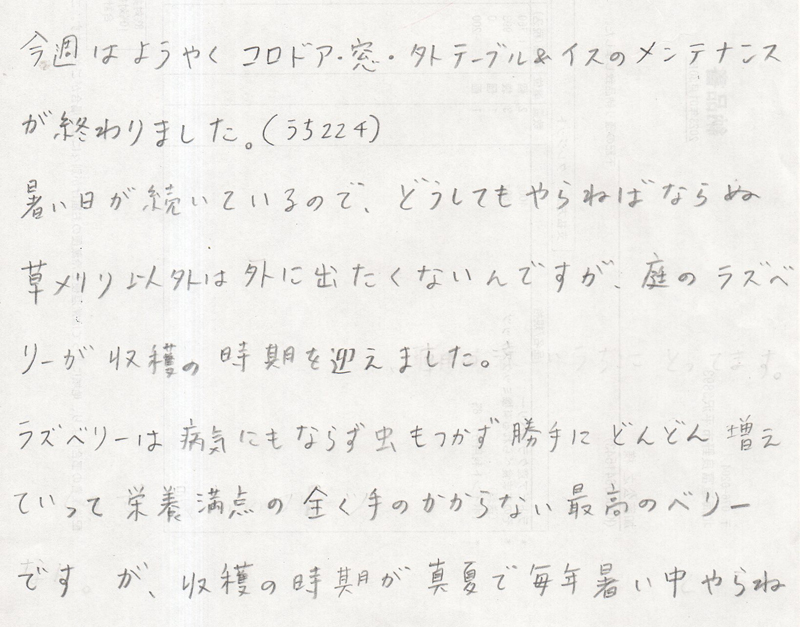 今週はようやくコロドア・窓・外テーブル&イスのメンテナンス
が終わりました。(うち224)
暑い日が続いているので、どうしてもやらねばならぬ
草メリリ以外は外に出たくないんですが、庭のラズベ
リーが収穫の時期を迎えました。
ラズベリーは病気にもならず虫もつかず勝手にどんどん増え
ていって栄養満点の全く手のかからない最高のベリー
ですが、収穫の時期が真夏で毎年暑い中やらね